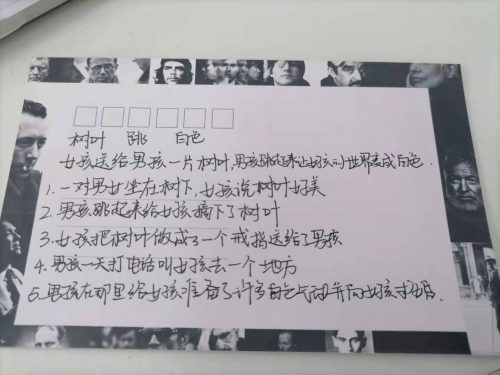 树叶 跳 白色
女孩送给男孩一片树叶,男孩跳起来让女孩的世界变成白色.
1. 一对男女坐在树下,女孩说树叶好美
2. 男孩跳起来给女孩摘下了树叶
3. 女孩把树叶做成了一个戒指送给了男孩
4. 男孩一天打电话叫女孩去一个地方
5. 男孩在那里给女孩准备了许多白色气球并向女孩求婚.